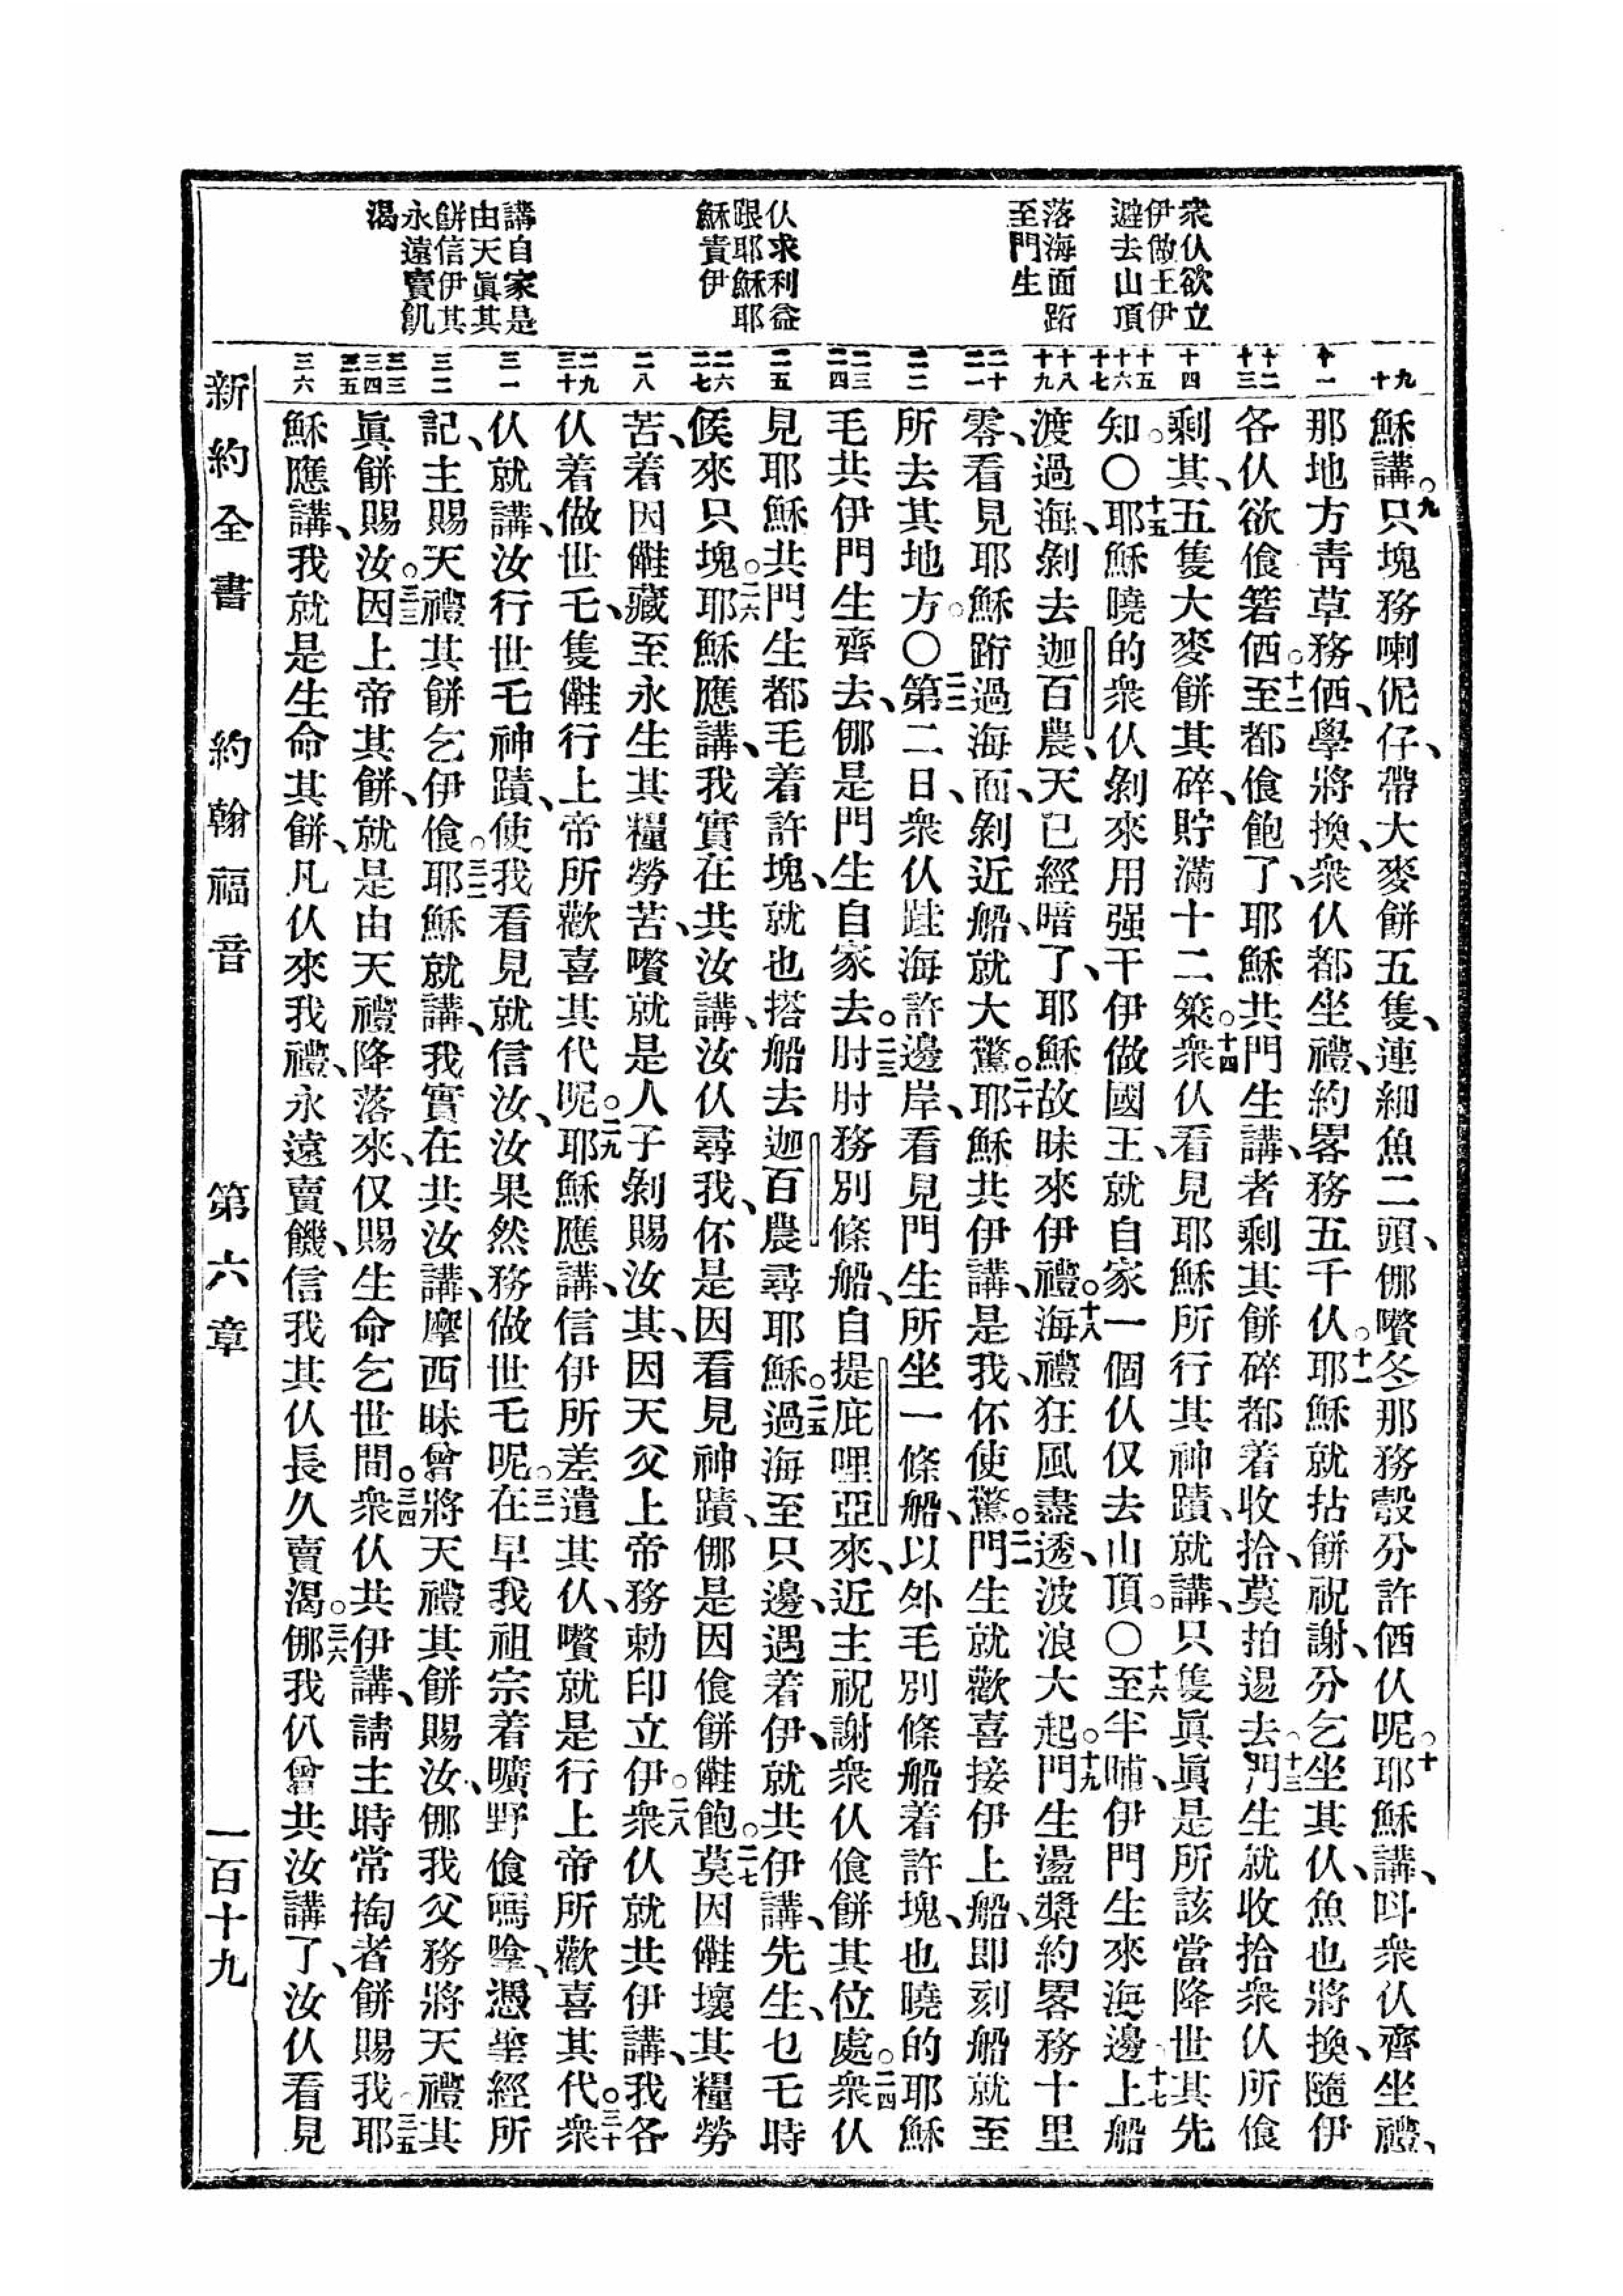 衆仈欲立
伊做王伊
避去山頂
落海面跲
至門生
仈求利益
跟耶穌耶
穌責伊
講自家是
由天眞其
餅信伊其
永遠賣飢
渴
九
十
十一
十二
十三
十四
十五
十六
十七
十八
十九
二十
二一
二二
二三
二四
二五
二六
二七
二八
二九
三十
三一
三二
三三
三四
三五
三六
穌講。九只塊務喇伲仔、帶大麥餅五隻、連細魚二頭、㑚嚽冬那務彀分許偤仈呢。十耶穌講、呌衆仈齊坐禮、
那地方靑草務偤、學將換、衆仈都坐禮、約畧務五千仈。十一耶穌就拈餅祝謝、分乞坐其仈、魚也將換、隨伊
各仈欲飧箬偤。十二至都飧飽了、耶穌共門生講、者剩其餅碎都着收拾、莫拍逿去。十三門生就收拾衆仈所飧
剩其、五隻大麥餅其碎、貯滿十二簗。十四衆仈看見耶穌所行其神蹟、就講、只隻眞眞是所該當降世其先
知。〇十五耶穌曉的衆仈剝來用强干伊做國王、就自家一個仈仅去山頂。〇十六至半晡、伊門生來海邊、十七上船
渡過海、剝去迦百農、天已經暗了、耶穌故昧來伊禮。十八海禮狂風盡透、波浪大起。十九門生盪槳約畧務十里
零、看見耶穌跲過海面、剝近船、就大驚。二十耶穌共伊講、是我、伓使驚。二一門生就歡喜接伊上船、即刻船就至
所去其地方。〇二二第二日、衆仈跬海許邊岸、看見門生所坐一條船、以外毛別條船着許塊、也曉的耶穌
毛共伊門生齊去、㑚是門生自家去。二三肘肘務別條船、自提庇哩亞來、近主祝謝衆仈飧餅其位處。二四衆仈
見耶穌共門生都毛着許塊、就也搭船去迦百農尋耶穌。二五過海至只邊、遇着伊、就共伊講、先生、乜乇時
候來只塊。二六耶穌應講、我實在共汝講、汝仈尋我、伓是因看見神蹟、㑚是因飧餅㒕飽。二七莫因㒕壞其糧勞
苦、着因㒕藏至永生其糧勞苦、嚽就是人子剝賜汝其、因天父上帝務勅印立伊。二八衆仈就共伊講、我各
仈着做世乇、隻㒕行上帝所歡喜其代呢。二九耶穌應講、信伊所差遣其仈、嚽就是行上帝所歡喜其代。三十衆
仈就講、汝行世乇神蹟、使我看見就信汝、汝果然務做世乇呢。三一在早我祖宗着曠野飧嗎哈、憑聖經所
記、主賜天禮其餅乞伊飧。三二耶穌就講、我實在共汝講、摩西昧曾將天禮其餅賜汝、㑚我父務將天禮其
眞餅賜汝。三三因上帝其餅、就是由天禮降落來、仅賜生命乞世間。三四衆仈共伊講、請主時常掏者餅賜我。三五耶
穌應講、我就是生命其餅、凡仈來我禮、永遠賣饑、信我其仈長久賣渴。三六㑚我仈曾共汝講了、汝仈看見
新約全書　約翰福音　第六章　一百十九